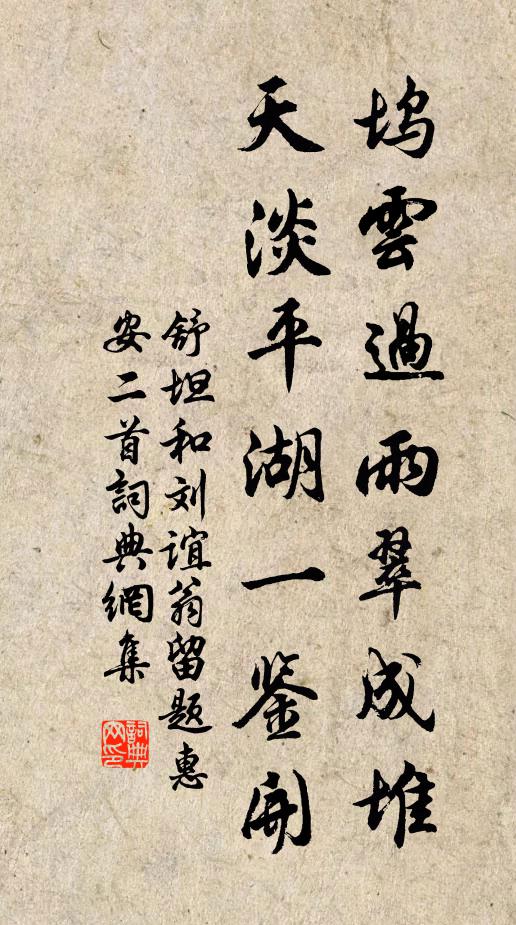 坞雲過雨翠成堆
天淡平湖一鉴開
舒坦和刘谊翁留题惠
安二首詞典網集
詞典